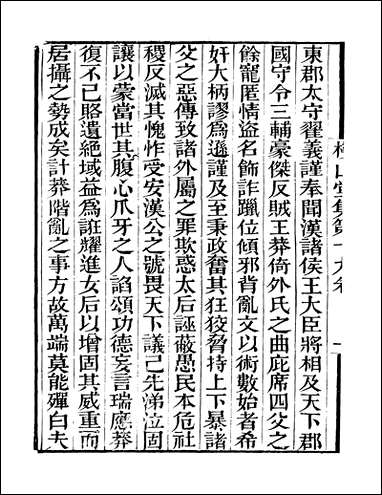 東郡太守翟義謹奉聞漢諸侯王大臣將相及天下郡
國守令三輔豪傑反賊王莽倚外氏之曲庇席四父之
餘寵匿情盜名飾詐躐位傾邪背亂文以術數始者希
奸大柄謬為遜謹及至秉政奮其狂狡脅持上下暴諸
父之惡傳致諸外屬之罪欺惑太后誣蔽愚民本危社
稷反滅其愧怍受安漢公之號畏天下議己先涕泣固
讓以蒙當世其腹心爪牙之人諂頌功德妄言瑞應莽
復不已賂遺絕域益為誑耀進女后以增固其威重而
居攝之勢成矣計莽階亂之事方故萬端莫能殫白夫
山堂集第十九卷
一